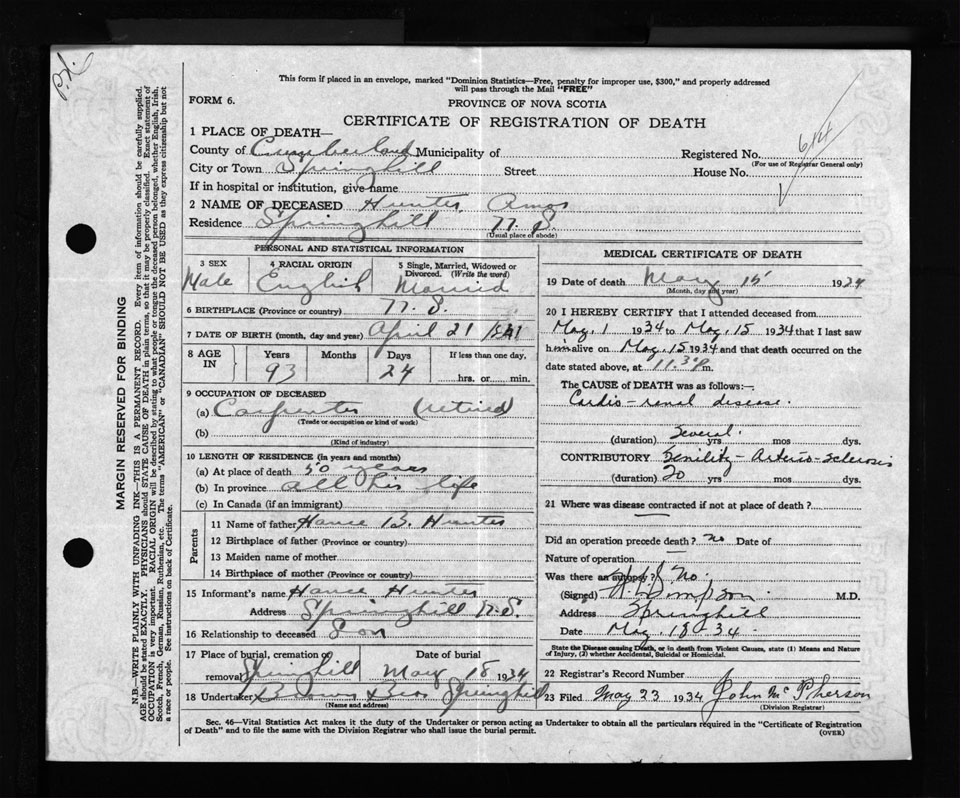 This form if placed in an envelope, marked "Dominion Statistics—Free, penalty for improper use, $300," and properly addressed
will pass through the Mail "FREE"
FORM 6.
PROVINCE OF NOVA SCOTIA
CERTIFICATE OF REGISTRATION OF DEATH
614
1 PLACE OF DEATH—
County of Cumberland Municipality of Registered No.
(For use of Registrar General only)
City or Town Springhill Street House No.
If in hospital or institution, give name
2 NAME OF DECEASED Hunter, Amos
Residence Springhill N. S.
(Usual place of abode)
PERSONAL AND STATISTICAL INFORMATION
3 SEX 4 RACIAL ORIGIN 5 Single, Married, Widowed or
Divorced. (Write the word)
Male English Married
6 BIRTHPLACE (Province or country) N. S.
7 DATE OF BIRTH (month, day and year) April 21 1841
8 AGE IN Years Months Days If less than one day,
93 24 hrs. or min.
9 OCCUPATION OF DECEASED
(a) Carpenter (retired)
(Trade or occupation or kind of work)
(b)
(Kind of industry)
10 LENGTH OF RESIDENCE (in years and months)
(a) At place of death 50 years
(b) In province all his life
(c) In Canada (if an immigrant)
Parents
11 Name of father Hance B. Hunter
12 Birthplace of father (Province or country)
13 Maiden name of mother
14 Birthplace of mother (Province or country)
15 Informant's name Hance Hunter
Address Springhill N.S.
16 Relationship to deceased Son
17 Place of burial, cremation or Date of burial
removal Springhill May 18 1934
18 Undertaker Brown & Bros Springhill
(Name and address)
MEDICAL CERTIFICATE OF DEATH
19 Date of death May 15 1934
(Month, day and year)
20 I HEREBY CERTIFY that I attended deceased from
May. 1 1934 to May. 15 1934 that I last saw
him alive on May. 15 1934 and that death occurred on the
date stated above, at 11.30 P.m.
The CAUSE of DEATH was as follows:—
Cardio-renal disease.
Several.
(duration) yrs mos dys.
CONTRIBUTORY Senility - Arterio-sclerosis
(duration) 20 yrs. mos dys.
21 Where was disease contracted if not at place of death?
Did an operation precede death? no Date of
Nature of operation —
Was there an autopsy? No.
(Signed) Simpson M.D.
Address Springhill
Date May. 18 - 34.
State the Disease causing Death, or in death from Violent Causes, state (1) Means and Nature
of Injury, (2) whether Accidental, Suicidal or Homicidal.
22 Registrar's Record Number
23 Filed May 23 1934 John McPherson
(Division Registrar)
Sec. 46—Vital Statistics Act makes it the duty of the Undertaker or person acting as Undertaker to obtain all the particulars required in the "Certificate of Registration
of Death" and to file the same with the Division Registrar who shall issue the burial permit.
(OVER)
MARGIN RESERVED FOR BINDING
N.B.—WRITE PLAINLY WITH UNFADING INK—THIS IS A PERMANENT RECORD. Every item of information should be carefully supplied.
AGE should be stated EXACTLY. PHYSICIANS should STATE CAUSE OF DEATH in plain terms, so that it may be properly classified. Exact statement of
OCCUPATION is very important. RACIAL ORIGIN will be described by stating to what people or tongue the deceased person belonged, whether English, Irish,
Scotch, French, German, Russian, Ruthenian, etc. The terms "AMERICAN" or "CANADIAN" SHOULD NOT BE USED as they express citizenship but not
a race or people. See instructions on back of Certificate.